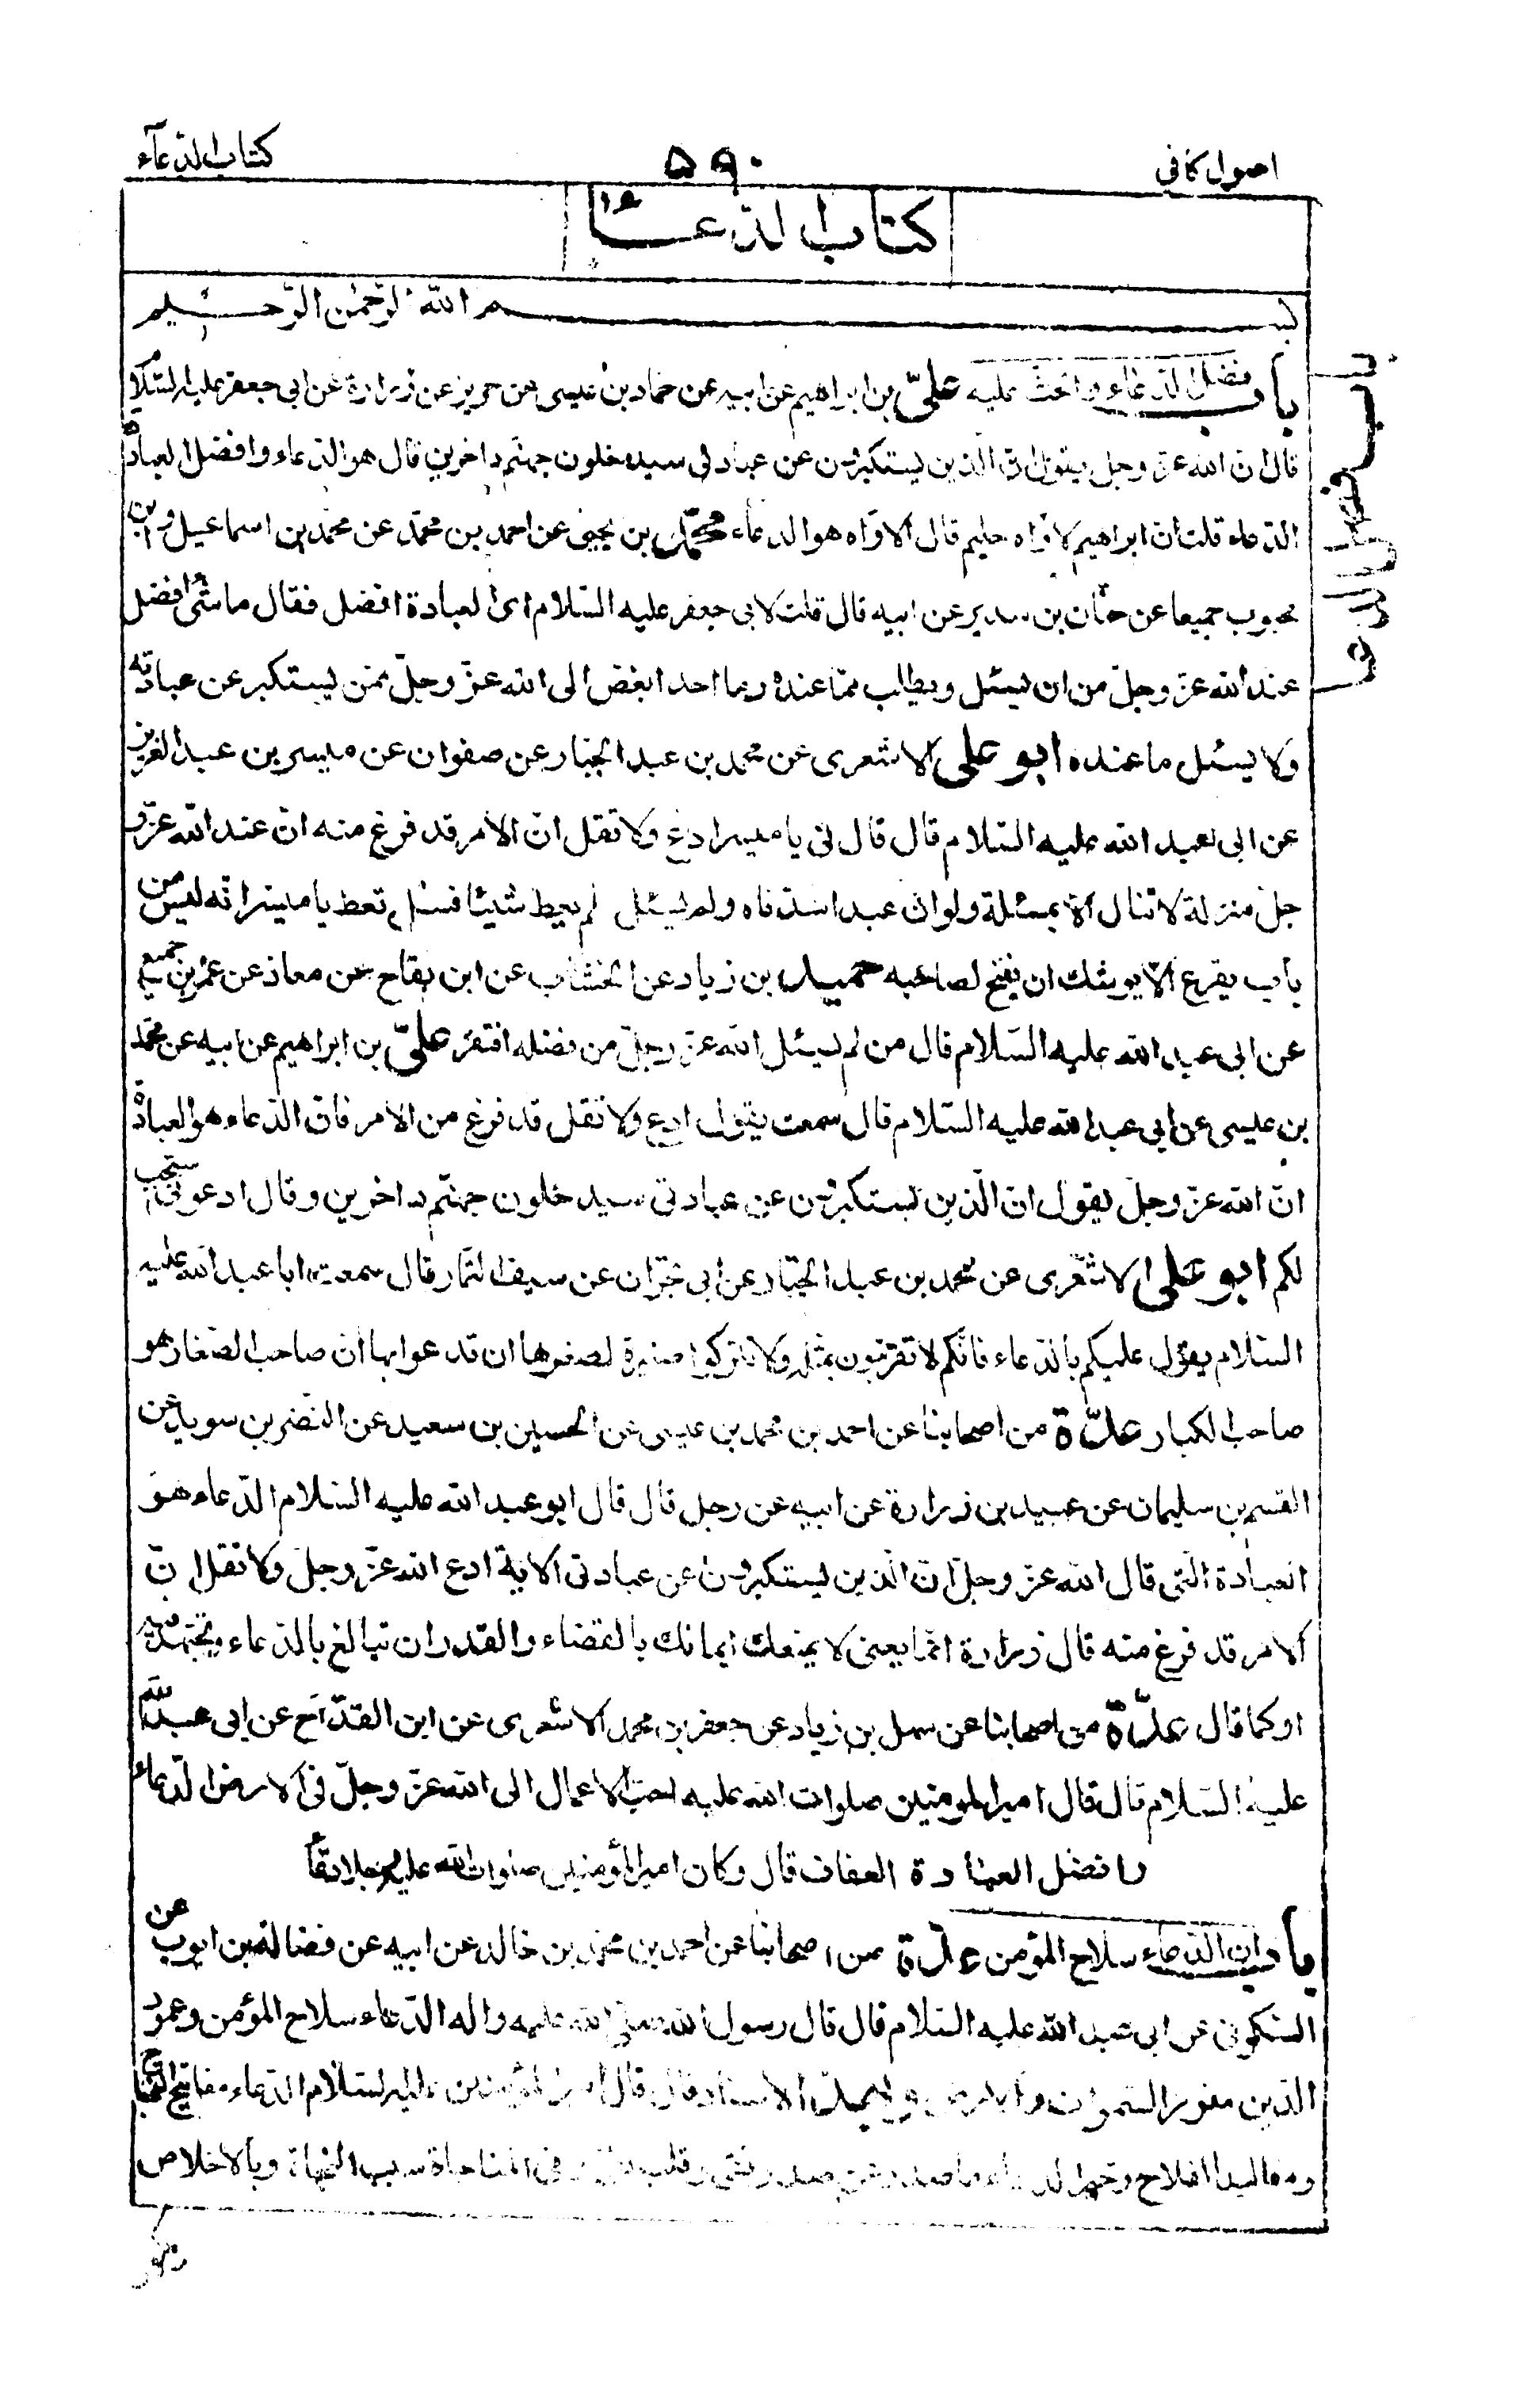 اصول كافى
٥٩٠
كتاب الدّعآء
كتاب الدّعاء
بسم الله الرّحمن الرّحيم
باب فضل الدّعاء والحثّ عليه علىّ بن ابراهيم عن ابيه عن حماد بن عيسى عن حريز عن زرارة عن ابى جعفر عليه السّلام
قال ان الله عزّ وجل يقول ان الّذين يستكبرون عن عبادتى سيدخلون جهنّم داخرين قال هو الدّعاء وافضل العبادة
الدّعاء قلت ان ابراهيم لاوّاه حليم قال الاوّاه هو الدعاء محمّد بن يحيى عن احمد بن محمّد عن محمد بن اسماعيل وابن
محبوب جميعا عن حنّان بن سدير عن ابيه قال قلت لابى جعفر عليه السّلام اىّ العبادة افضل فقال ما شئ افضل
عند الله عزّ وجلّ من ان يسئل ويطلب ممّا عنده وما احد ابغض الى الله عزّ وجلّ ممّن يستكبر عن عبادته
ولا يسئل ما عنده ابو على الاشعرى عن محمد بن عبد الجبّار عن صفوان عن ميسر بن عبد العزيز
عن ابى عبد الله عليه السّلام قال قال لى يا ميسر ادع ولا تقل انّ الامر قد فرغ منه انّ عند الله عزّ و
جلّ منزلة لا تنال الّا بمسئلة ولو ان عبدا سدّ فاه ولم يسئل لم يعط شيئا فسئل تعط يا ميسر انّه ليس من
باب يقرع الّا يوشك ان يفتح لصاحبه حميد بن زياد عن الخشّاب عن ابن بقاح عن معاذ عن عمرو بن جميع
عن ابى عبد الله عليه السّلام قال من لم يسئل الله عزّ وجلّ من فضله افتقر علىّ بن ابراهيم عن ابيه عن محمّد
بن عليسى عن ابى عبد الله عليه السّلام قال سمعت يقول ادع ولا تقل قد فرغ من الامر فانّ الدّعاء هو العبادة
انّ الله عزّ وجلّ يقول انّ الّذين يستكبرون عن عبادتى سيدخلون جهنّم داخرين وقال ادعونى استجب
لكم ابو على الاشعرى عن محمد بن عبد الجبّار عن ابى نجران عن سيف التّمار قال سمعت ابا عبد الله عليه
السّلام يقول عليكم بالدّعاء فانّكم لا تقرّبون بمثله ولا تتركوا صغيرة لصغرها ان تدعوا بها انّ صاحب الصّغار هو
صاحب الكبار عدّة من اصحابنا عن احمد بن محمد بن عيسى عن الحسين بن سعيد عن النّضر بن سويد عن
القسم بن سليمان عن عبيد بن زرارة عن ابيه عن رجل قال قال ابو عبد الله عليه السّلام الدّعاء هو
العبادة الّتى قال الله عزّ وجلّ انّ الّذين يستكبرون عن عبادتى الاية ادع الله عزّ وجلّ ولا تقل انّ
الامر قد فرغ منه قال زرارة انّما يعنى لا يمنعك ايمانك بالقضاء والقدر ان تبالغ بالدّعاء وتجتهد فيه
او كما قال عدّة من اصحابنا عن سهل بن زياد عن جعفر بن محمد الاشعرى عن ابن القدّاح عن ابى عبد الله
عليه السّلام قال قال امير المومنين صلوات الله عليه احبّ الاعمال الى الله عزّ وجلّ فى الارض الدّعاء
وافضل العبادة العفاف قال وكان امير المؤمنين صلوات الله عليه رجلا دعّاء
باب ان الدّعاء سلاح المؤمن عدّة من اصحابنا عن احمد بن محمد بن خالد عن ابيه عن فضالة بن ايوب عن
السّكونى عن ابى عبد الله عليه السّلام قال قال رسول الله صلّى الله عليه واله الدّعاء سلاح المؤمن وعمود
الدّين ونور السّموات والارض وبهذا الاسناد قال قال امير المؤمنين عليه السّلام الدّعاء مفاتيح النّجاح
ومقاليد الفلاح وخير الدّعاء ما صدر عن صدر نقىّ وقلب تقىّ وفى المناجاة سبب النّجاة وبالاخلاص